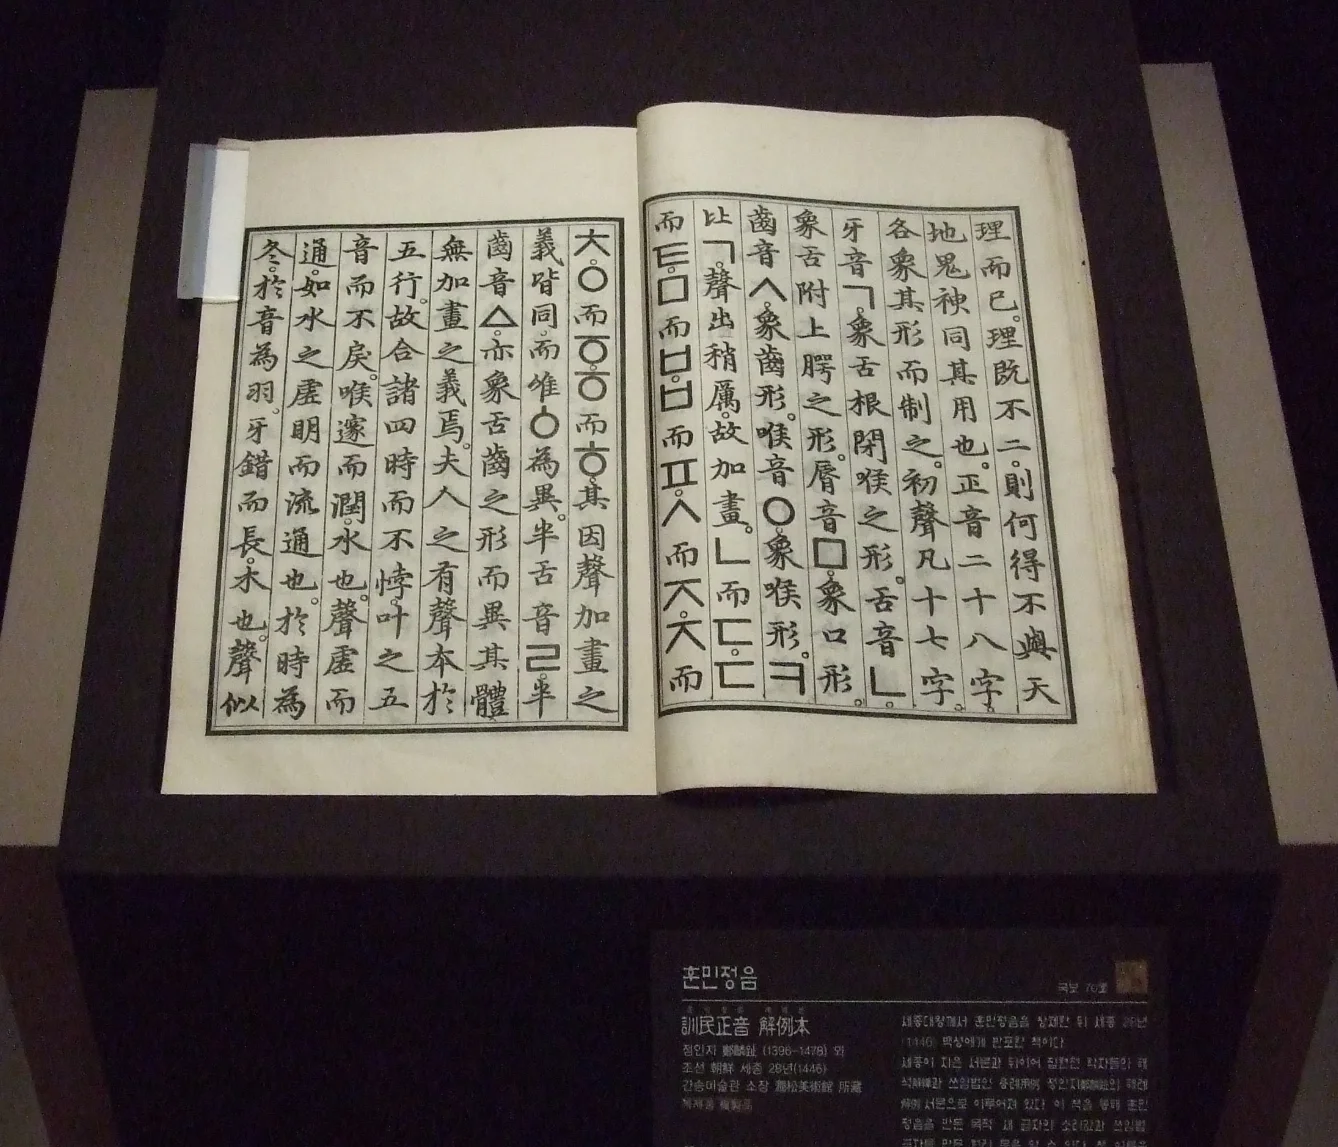 理而已。理既不二。則何得不與天
地鬼神同其用也。正音二十八字。
各象其形而制之。初聲凡十七字。
牙音ㄱ。象舌根閉喉之形。舌音ㄴ。
象舌附上腭之形。脣音ㅁ。象口形。
齒音ㅅ。象齒形。喉音ㅇ。象喉形。ㅋ
比ㄱ。聲出稍厲。故加畫。ㄴ而ㄷ。ㄷ
而ㅌ。ㅁ而ㅂ。ㅂ而ㅍ。ㅅ而ㅈ。ㅈ而
ㅊ。ㅇ而ㆆ。ㆆ而ㅎ。其因聲加畫之
義皆同。而唯ㆁ為異。半舌音ㄹ。半
齒音ㅿ。亦象舌齒之形而異其體。
無加畫之義焉。夫人之有聲本於
五行。故合諸四時而不悖。叶之五
音而不戾。喉邃而潤。水也。聲虛而
通。如水之虛明而流通也。於時為
冬。於音為羽。牙錯而長。木也。聲似
훈민정음
국보 70호
訓民正音 解例本
정인지 鄭麟趾 (1396-1478) 외
조선 朝鮮 세종 28년(1446)
간송미술관 소장 澗松美術館 所藏
복제품 複製品
세종대왕께서 훈민정음을 창제한 뒤 세종 28년
(1446) 백성에게 반포한 책이다.
세종이 지은 서문과 뒤이어 집현전 학자들의 해